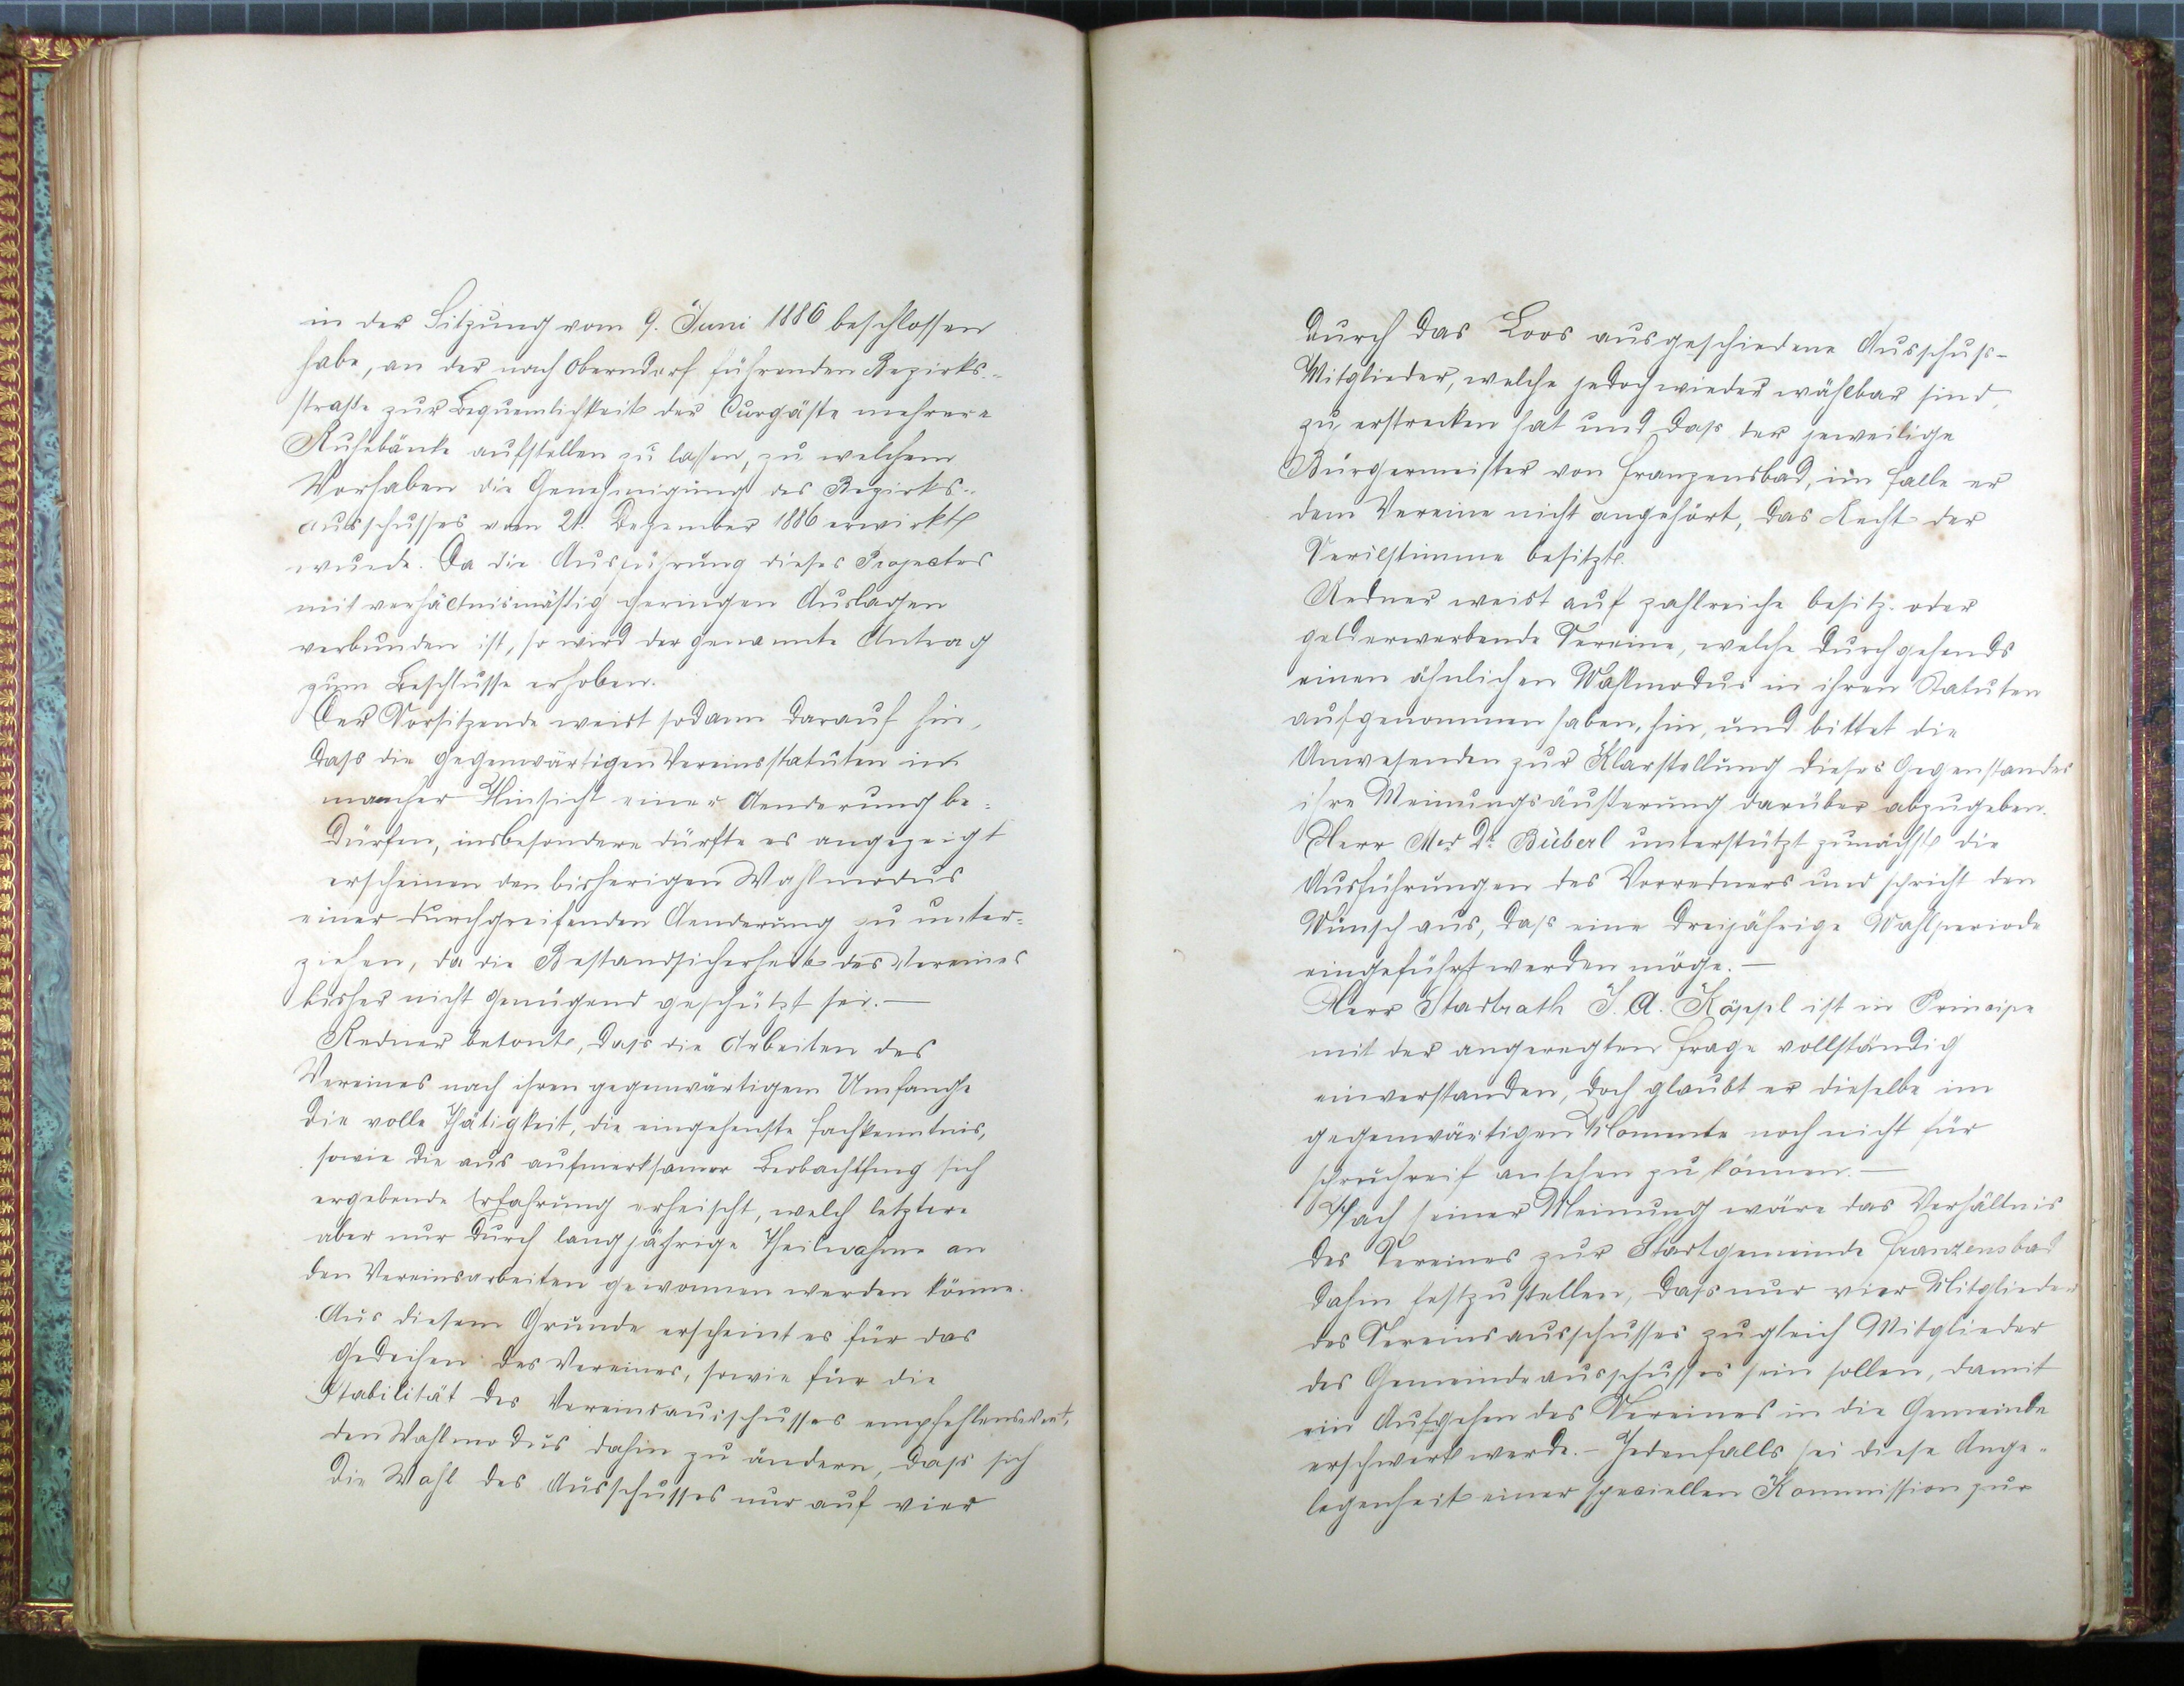 in der Sitzung vom 9. Juni 1886 beschlossen
habe, an der nach Oberndorf führenden Bezirks-
straße zur Bequemlichkeit der Curgäste mehrere
Ruhebänke aufstellen zu lassen, zu welchem
Vorhaben die Genehmigung des Bezirks-
ausschusses vom 21. Dezember 1886 erwirkt
wurde. Da die Ausführung dieses Projectes
mit verhältnismäßig geringen Auslagen
verbunden ist, so wird der genannte Antrag
zum Beschlusse erhoben.
Der Vorsitzende weist sodann darauf hin,
daß die gegenwärtigen Vereinsstatuten in
mancher Hinsicht einer Aenderung be-
dürfen, insbesondere dürfte es angezeigt
erscheinen den bisherigen Wahlmodus
einer durchgreifenden Aenderung zu unter-
ziehen, da die Bestandsicherheit des Vereines
bisher nicht genügend geschützt sei. —
Redner betont, daß die Arbeiten des
Vereines nach ihren gegenwärtigem Umfange
die volle Thätigkeit, die eingehenste Fachkenntnis,
sowie die aus aufmerksamer Beobachtung sich
ergebende Erfahrung erheischt, welch letztere
aber nur durch langjährige Theilnahme an
den Vereinsarbeiten gewonnen werden könne.
Aus diesem Grunde erscheint es für das
Gedeihen des Vereines, sowie für die
Stabilität des Vereinsausschusses empfehlenswert,
den Wahlmodus dahin zu ändern, daß sich
die Wahl des Ausschusses nur auf vier
durch das Loos ausgeschiedene Ausschuß-
Mitglieder, welche jedoch wieder wählbar sind,
zu erstrecken hat und daß der jeweilige
Bürgermeister von Franzensbad, im Falle er
dem Vereine nicht angehört, das Recht der
Virilstimme besitzt.
Redner weist auf zahlreiche besitz- oder
gelderwerbende Vereine, welche durchgehends
einen ähnlichen Wahlmodus in ihren Statuten
aufgenommen haben, hin, und bittet die
Anwesenden zur Klarstellung dieses Gegenstandes
ihre Meinungsäußerung darüber abzugeben.
Herr Med Dr. Büberl unterstützt zunächst die
Ausführungen des Vorredners und spricht den
Wunsch aus, daß eine dreijährige Wahlperiode
eingeführt werden möge. —
Herr Stadtrath J. A. Köppl ist in Principe
mit der angeregten Frage vollständig
einverstanden, doch glaubt er dieselbe im
gegenwärtigen Momente noch nicht für
spruchreif ansehen zu können. —
Nach seiner Meinung wäre das Verhältnis
des Vereines zur Stadtgemeinde Franzensbad
dahin festzustellen, daß nur vier Mitglieder
des Vereinsausschusses zugleich Mitglieder
des Gemeindeausschusses sein sollen, damit
ein Aufgehen des Vereines in die Gemeinde
erschwert werde. – Jedenfalls sei diese Ange-
legenheit einer speciellen Kommission zur